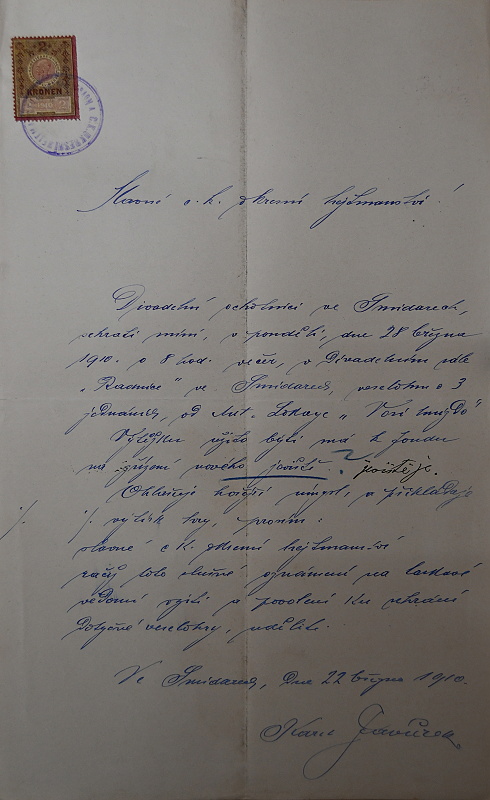 2
KRONEN
1910
Slavné c. k. okresní hejtmanství!
Divadelní ochotníci ve Smidarech,
sehráti míní, v pondělí, dne 28 března
1910. o 8 hod. večer, v Divadelním sále
„Radnice" ve Smidarech, veselohru o 3
jednáních od Ant. Lokaye „Vosí hnízdo"
Výtěžku užito býti má k fondu
na zřízení nového jeviště. ? jeviště je.
Ohlašuje hořejší úmysl, a přikládaje
%. výtisk hry, prosím:
slavné c k. okresní hejtmanství
račiž toto slušné oznámení na laskavé
vědomí vzíti a povolení ku sehrání
dotyčné veselohry, uděliti.
Ve Smidarech, Dne 22 března 1910.
Karel